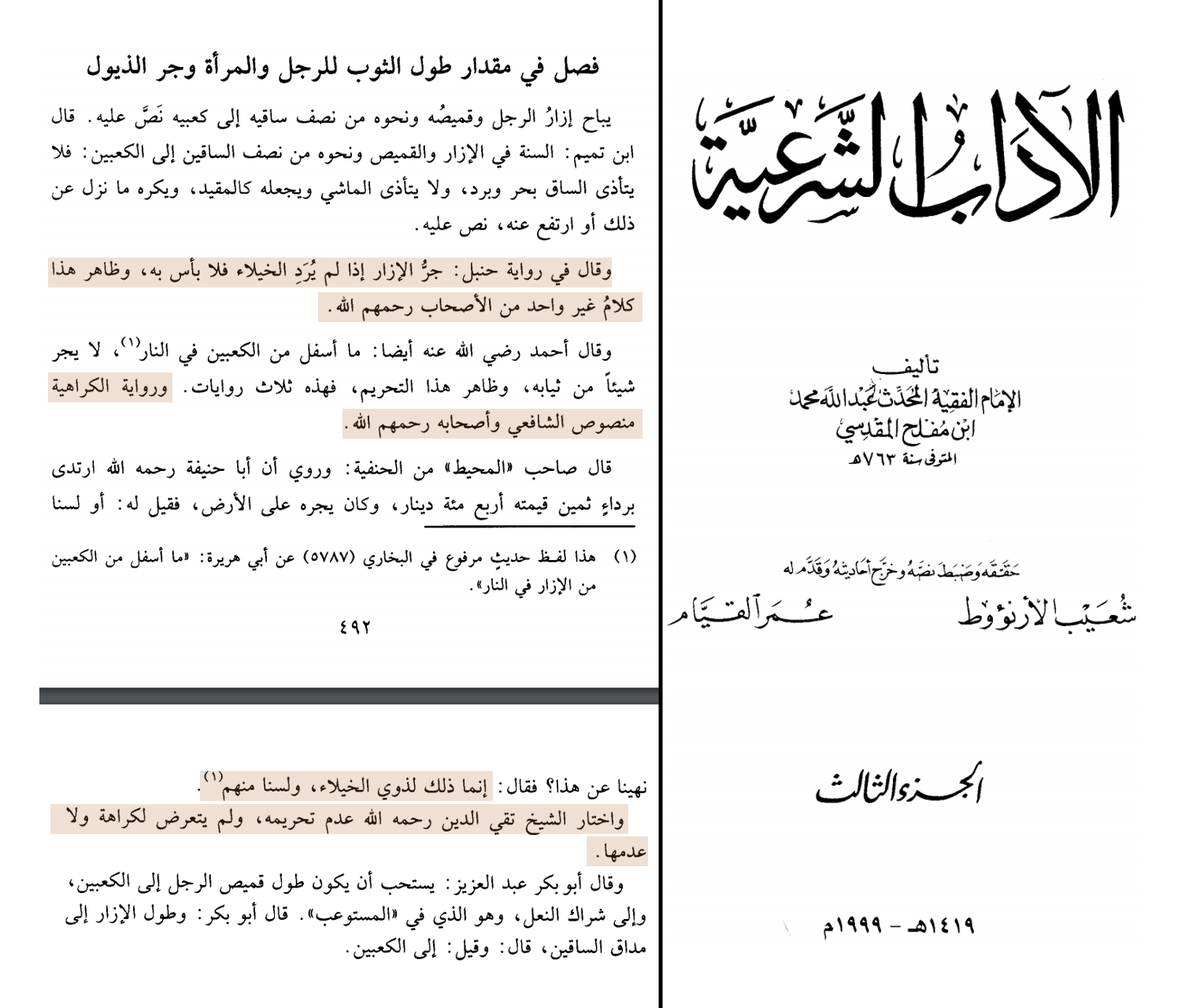 الآداب الشرعية
تأليف
الإمام الفقيه المحدث عبد الله محمد
ابن مفلح المقدسي
المتوفى سنة ٧٦٣هـ
حققه وضبط نصه وخرج أحاديثه وقدم له
شعيب الأرنؤوط عمر القيام
الجزء الثالث
١٤١٩هـ – ١٩٩٩م
فصل في مقدار طول الثوب للرجل والمرأة وجر الذيول
يباح إزارُ الرجل وقميصُه ونحوه من نصف ساقيه إلى كعبيه نَصَّ عليه. قال
ابن تميم: السنة في الإزار والقميص ونحوه من نصف الساقين إلى الكعبين: فلا
يتأذى الساق بحر وبرد، ولا يتأذى الماشي ويجعله كالمقيد، ويكره ما نزل عن
ذلك أو ارتفع عنه، نص عليه.
وقال في رواية حنبل: جرُّ الإزار إذا لم يُرَدِ الخيلاء فلا بأس به، وظاهر هذا
كلامُ غير واحد من الأصحاب رحمهم الله.
وقال أحمد رضي الله عنه أيضا: ما أسفل من الكعبين في النار(١)، لا يجر
شيئاً من ثيابه، وظاهر هذا التحريم، فهذه ثلاث روايات. ورواية الكراهية
منصوص الشافعي وأصحابه رحمهم الله.
قال صاحب «المحيط» من الحنفية: وروي أن أبا حنيفة رحمه الله ارتدى
برداءٍ ثمين قيمته أربع مئة دينار، وكان يجره على الأرض، فقيل له: أو لسنا
(١) هذا لفظ حديثٍ مرفوع في البخاري (٥٧٨٧) عن أبي هريرة: «ما أسفل من الكعبين
من الإزار في النار».
٤٩٢
نهينا عن هذا؟ فقال: إنما ذلك لذوي الخيلاء، ولسنا منهم(١).
واختار الشيخ تقي الدين رحمه الله عدم تحريمه، ولم يتعرض لكراهة ولا
عدمها.
وقال أبو بكر عبد العزيز: يستحب أن يكون طول قميص الرجل إلى الكعبين،
وإلى شراك النعل، وهو الذي في «المستوعب». قال أبو بكر: وطول الإزار إلى
مداق الساقين، قال: وقيل: إلى الكعبين.